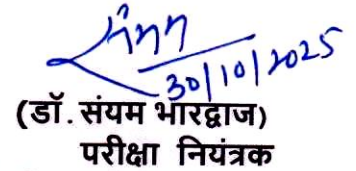 30/10/2025
(डॉ. संयम भारद्वाज)
परीक्षा नियंत्रक